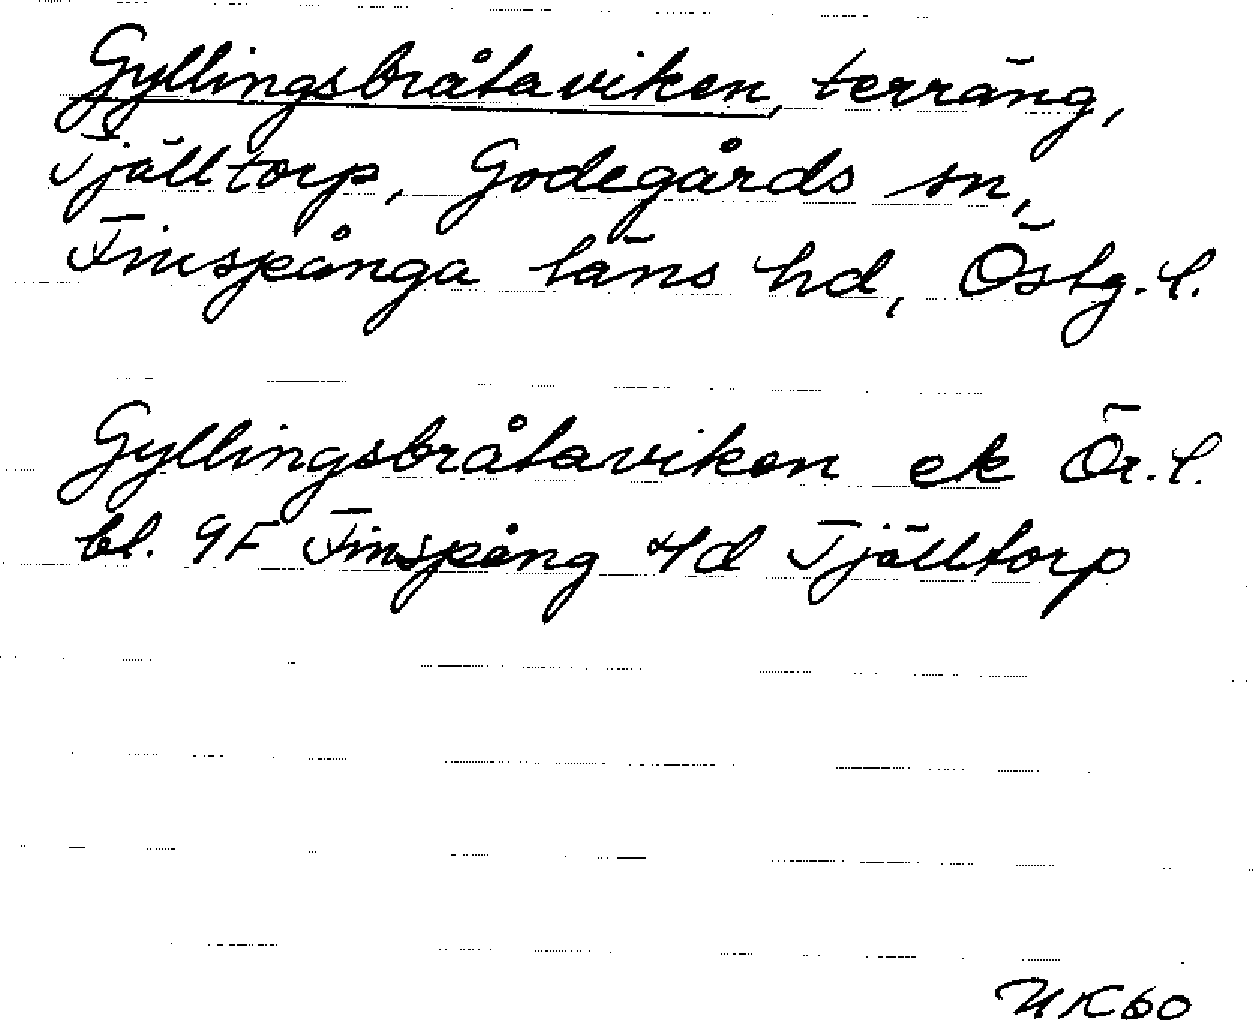 Gyllingsbråtaviken, terräng,
Tjälltorp, Godegårds sn,
Finspånga läns hd, Östg. l.
Gyllingsbråtaviken ek Ör. l.
bl. 9F Finspång 4d Tjälltorp